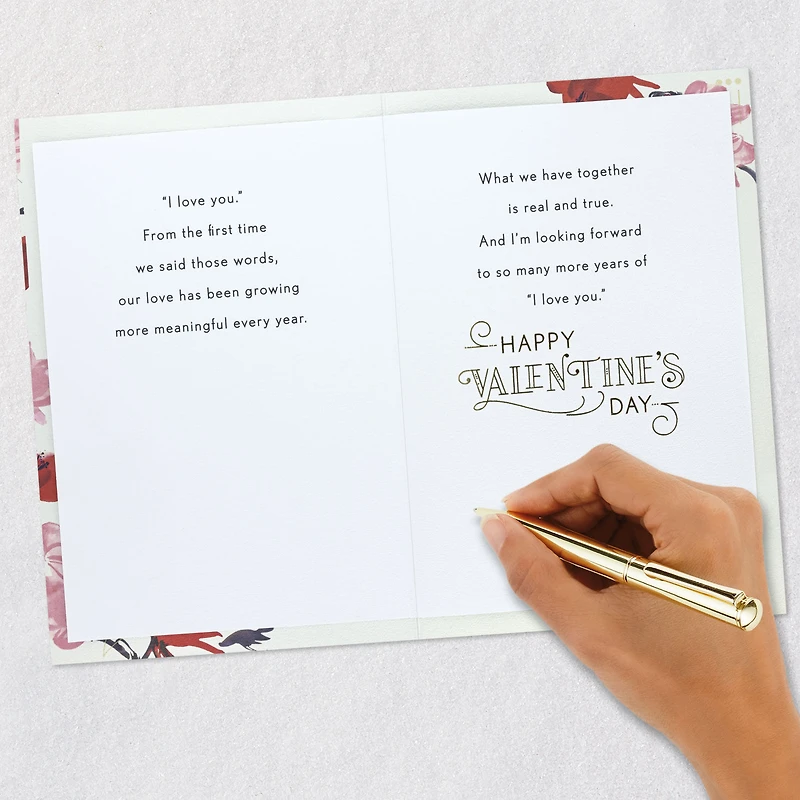 “I love you.”
From the first time
we said those words,
our love has been growing
more meaningful every year.
What we have together
is real and true.
And I’m looking forward
to so many more years of
“I love you.”
HAPPY
VALENTINE’S
DAY